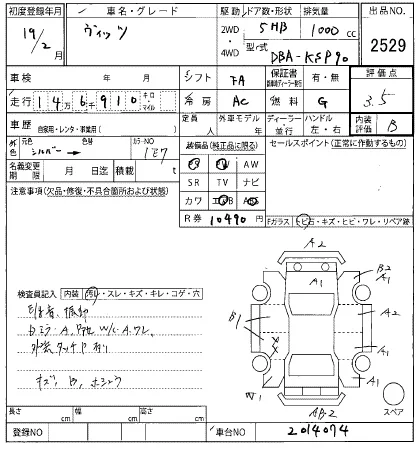 初度登録年月 車名・グレード 駆動 ドア数・形状 排気量 出品NO.
19/2月 ヴィッツ 2WD・4WD 5HB 1000cc 2529
型式 DBA-KSP90
車検 年 月 シフト FA 保証書 有・無 評価点
走行 14万6千910 キロ・マイル 冷房 AC 燃料 G 3.5
車歴 自家用・レンタ・事業用( ) 定員 人 外車モデル 年 ディーラー・並行 ハンドル 左・右 内装評価 B
外色 元色 シルバー 色替 カラーNO 1E7 装備品(純正品に限る) セールスポイント(正常に作動するもの)
名義変更期限 月 日迄 積載 t PS PW AW
注意事項(欠品・修復・不具合箇所および状態) SR TV ナビ
カワ エアB ABS
R券 10490円 Fガラス(トビ石・キズ・ヒビ・ワレ・リペア跡
A2
A1
B2
A1
検査員記入 内装 汚れ・スレ・キズ・キレ・コゲ・穴
B1
A2
A1
外装タッチP有り
キズ、B、
W1
A1
AB2
スペア
長さ cm 幅 cm 高さ cm
登録NO 車台NO 2014074